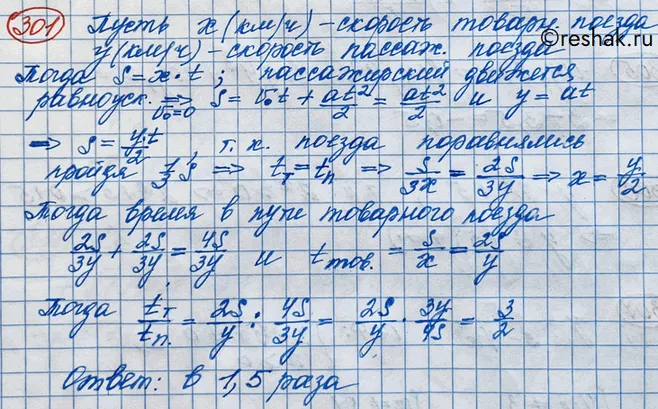 301 Пусть x (км/ч) – скорость товарн. поезда
y (км/ч) – скорость пассаж. поезда
©reshak.ru
Тогда S = x·t ; пассажирский движется
равноуск. ⇒ v₀=0 S = v₀t + at²/2 = at²/2 и y = at
⇒ S = y·t/2 , т.к. поезда поравнялись
пройдя 1/3 S ⇒ tт = tп ⇒ S/3x = 2S/3y ⇒ x = y/2
Тогда время в пути товарного поезда
2S/3y + 2S/3y = 4S/3y и tтов. = S/x = 2S/y
Тогда tт/tп. = 2S/y : 4S/3y = 2S/y · 3y/4S = 3/2
Ответ: в 1,5 раза